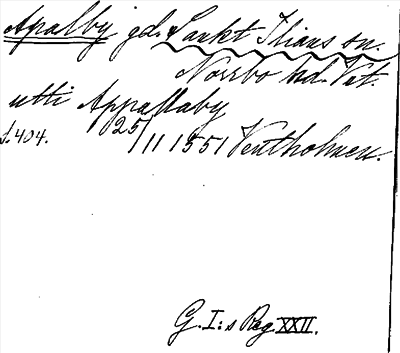 Apalby gd. Sankt Ilians sn.
Norrbo hd. Vst.
utti Appallaby
s. 404. 25/11 1551 Ventholmen.
G. I:s Reg XXII.